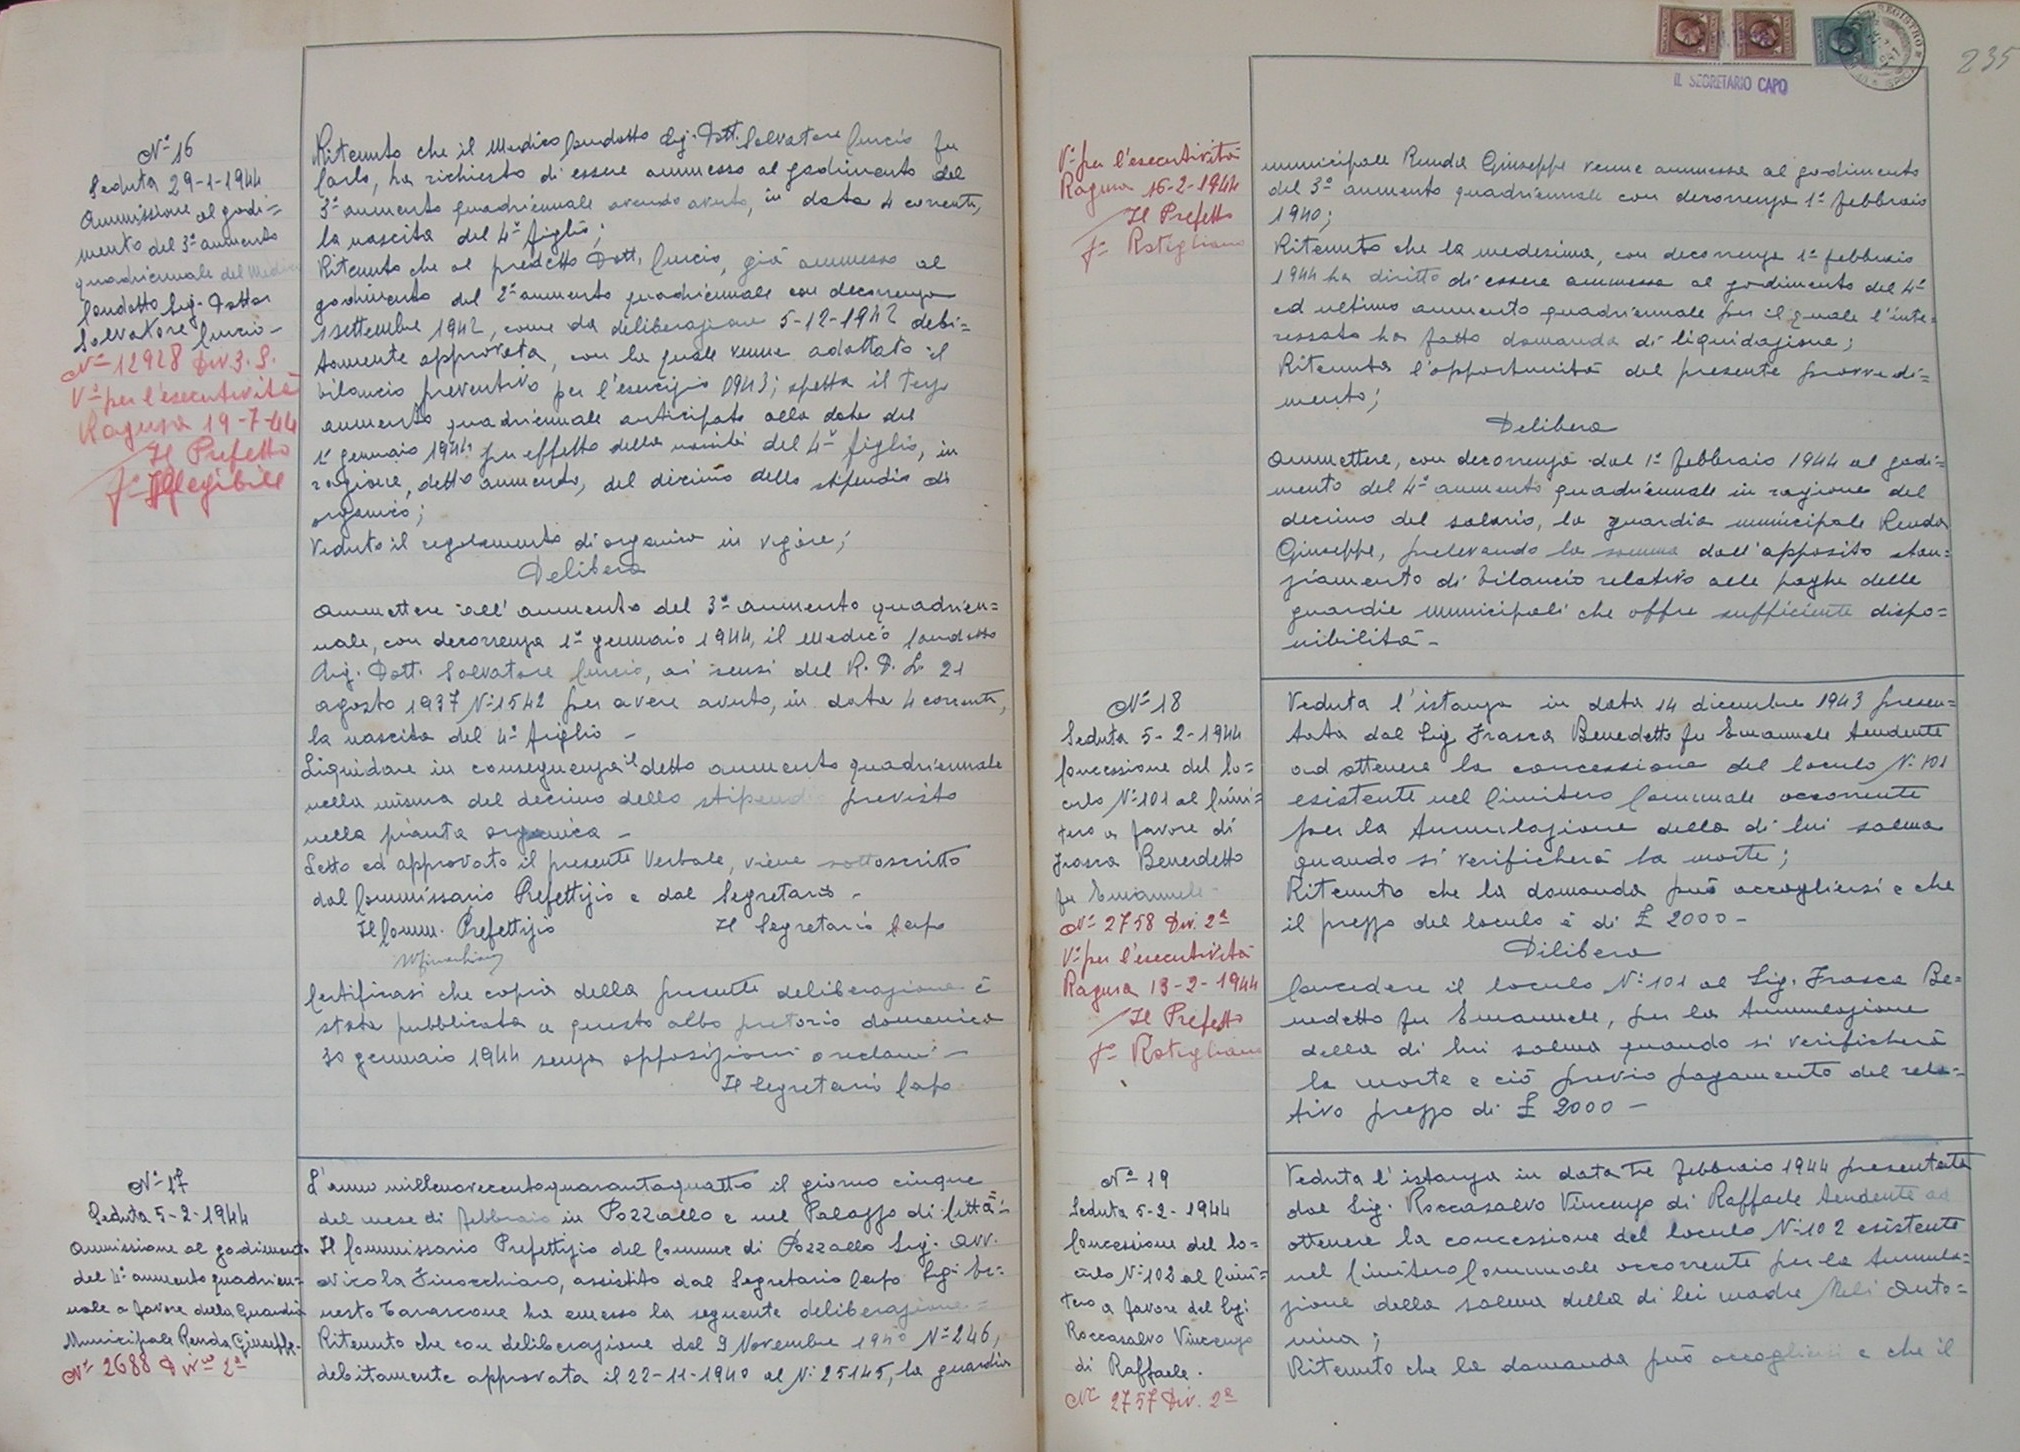 N° 16
Seduta 29-1-1944
Ammissione al godi=
mento del 3° aumento
quadriennale del Medico
Condotto Sig. Dottor
Salvatore Curcio -
N° 12928 Div. 3. S.
V° per l'esecutività
Ragusa 19-7-44
Il Prefetto
F° Illegibile
Ritenuto che il Medico Condotto Sig. Dott. Salvatore Curcio fu
Carlo, ha richiesto di essere ammesso al godimento del
3° aumento quadriennale avendo avuto, in data 4 corrente,
la nascita del 4° figlio;
Ritenuto che al predetto Dott. Curcio, già ammesso al
godimento del 2° aumento quadriennale con decorrenza
1 settembre 1942, come da deliberazione 5-12-1942 debi=
tamente approvata, con la quale venne adottato il
bilancio preventivo per l'esercizio 1943; spetta il terzo
aumento quadriennale anticipato alla data del
1° gennaio 1944 per effetto della nascita del 4° figlio, in
ragione, detto aumento, del decimo dello stipendio di
organico;
Veduto il regolamento di organico in vigore;
Delibera
Ammettere all'aumento del 3° aumento quadrien=
nale, con decorrenza 1° gennaio 1944, il Medico Condotto
Sig. Dott. Salvatore Curcio, ai sensi del R. D. L. 21
agosto 1937 N° 1542 per avere avuto, in data 4 corrente,
la nascita del 4° figlio -
Liquidare in conseguenza il detto aumento quadriennale
nella misura del decimo dello stipendio previsto
nella pianta organica -
Letto ed approvato il presente Verbale, viene sottoscritto
dal Commissario Prefettizio e dal Segretario -
Il Comm. Prefettizio Il Segretario Capo
Certificasi che copia della presente deliberazione è
stata pubblicata a questo albo pretorio domenica
30 gennaio 1944 senza opposizioni o reclami -
Il Segretario Capo
N° 17
Seduta 5-2-1944
Ammissione al godimento
del 4° aumento quadrien=
nale a favore della Guardia
Municipale Renda Giuseppe.
N° 2688 Div. 2ª
L'anno millenovecentoquarantaquattro il giorno cinque
del mese di febbraio in Pozzallo e nel Palazzo di Città=
Il Commissario Prefettizio del Comune di Pozzallo Sig. Avv.
Nicola Finocchiaro, assistito dal Segretario Capo Sig. Er=
nesto Tarascone ha emesso la seguente deliberazione=
Ritenuto che con deliberazione del 9 Novembre 1940 N° 246,
debitamente approvata il 22-11-1940 al N. 25145, la guardia
235
IL SEGRETARIO CAPO
V° per l'esecutività
Ragusa 16-2-1944
Il Prefetto
F° Rotigliano
municipale Renda Giuseppe venne ammessa al godimento
del 3° aumento quadriennale con decorrenza 1° febbraio
1940;
Ritenuto che la medesima, con decorrenza 1° febbraio
1944 ha diritto di essere ammessa al godimento del 4°
ed ultimo aumento quadriennale per il quale l'inte=
ressato ha fatto domanda di liquidazione;
Ritenuta l'opportunità del presente provvedi=
mento;
Delibera
Ammettere, con decorrenza dal 1° febbraio 1944 al godi=
mento del 4° aumento quadriennale in ragione del
decimo del salario, la guardia municipale Renda
Giuseppe, prelevando la somma dall'apposito stan=
ziamento di bilancio relativo alle paghe delle
guardie municipali che offre sufficiente dispo=
nibilità -
N° 18
Seduta 5-2-1944
Concessione del lo=
culo N° 101 al Cimi=
tero a favore di
Frasca Benedetto
fu Emanuele -
N° 2758 Div. 2ª
V° per l'esecutività
Ragusa 13-2-1944
Il Prefetto
F° Rotigliano
Veduta l'istanza in data 14 dicembre 1943 presen=
tata dal Sig. Frasca Benedetto fu Emanuele tendente
ad ottenere la concessione del loculo N. 101
esistente nel Cimitero Comunale occorrente
per la tumulazione della di lui salma
quando si verificherà la morte;
Ritenuto che la domanda può accogliersi e che
il prezzo del loculo è di £ 2000 -
Dilibera
Concedere il loculo N° 101 al Sig. Frasca Be=
nedetto fu Emanuele, per la tumulazione
della di lui salma quando si verificherà
la morte e ciò previo pagamento del rela=
tivo prezzo di £ 2000 -
N° 19
Seduta 5-2-1944
Concessione del lo=
culo N° 102 al Cimi=
tero a favore del Sig.
Roccasalvo Vincenzo
di Raffaele.
N° 2757 Div. 2ª
Veduta l'istanza in data tre febbraio 1944 presentata
dal Sig. Roccasalvo Vincenzo di Raffaele tendente ad
ottenere la concessione del loculo N° 102 esistente
nel Cimitero Comunale occorrente per la tumula=
zione della salma della di lei madre Meli Anto=
nina;
Ritenuto che la domanda può accogliersi e che il